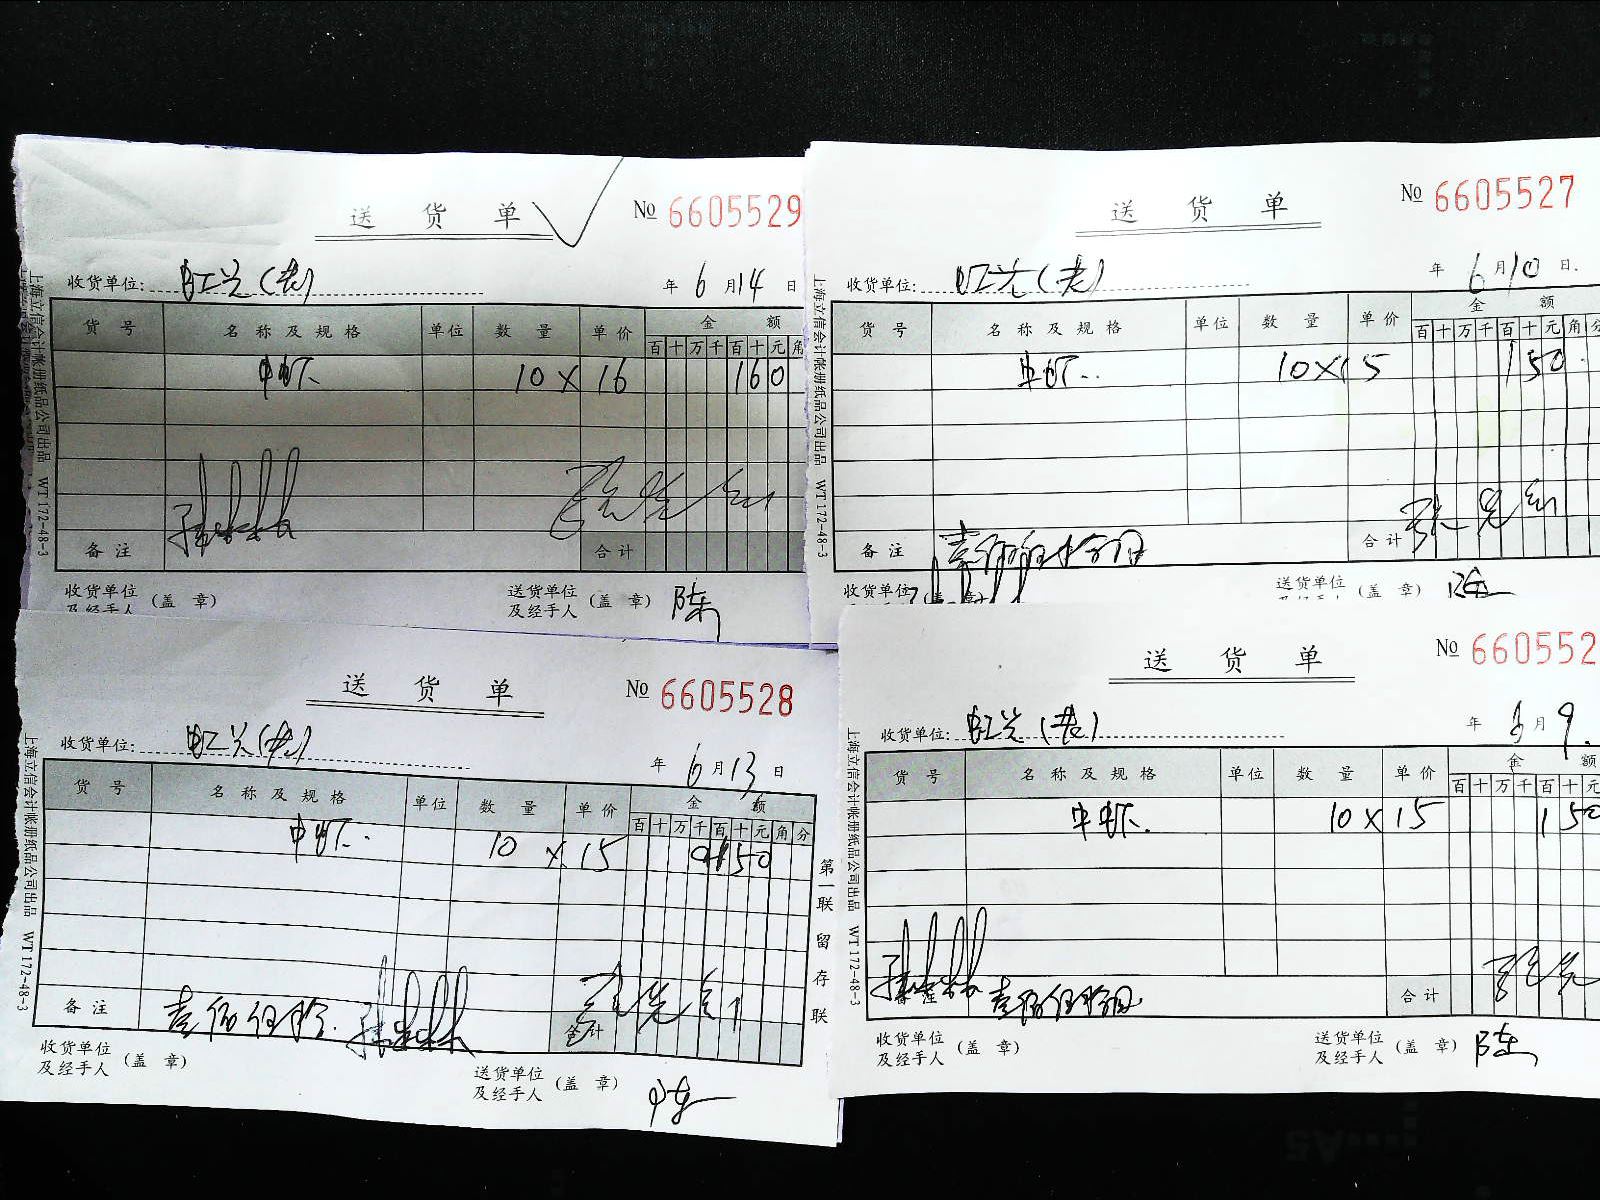 送货单
№ 6605529
收货单位: 虹光(老)
年 6 月 14 日
货号 名称及规格 单位 数量 单价 金额
百 十 万 千 百 十 元 角
中虾 10 × 16 160
备注 合计
收货单位及经手人 (盖章) 送货单位及经手人 (盖章) 陈
上海立信会计帐册纸品公司出品 WT 172-48-3
送货单
№ 6605527
收货单位: 虹光(老)
年 6 月 10 日
货号 名称及规格 单位 数量 单价 金额
百 十 万 千 百 十 元 角 分
中虾 10×15 150
备注 壹佰伍拾元 合计
收货单位 (盖章) 送货单位及经手人 (盖章) 陈
上海立信会计帐册纸品公司出品 WT 172-48-3
送货单
№ 6605528
收货单位: 虹光(老)
年 6 月 13 日
货号 名称及规格 单位 数量 单价 金额
百 十 万 千 百 十 元 角 分
中虾 10 × 15 150
备注 壹佰伍拾 合计
收货单位及经手人 (盖章) 送货单位及经手人 (盖章) 陈
上海立信会计帐册纸品公司出品 WT 172-48-3
第一联留存联
送货单
№ 660552
收货单位: 虹光(老)
年 6 月 9
货号 名称及规格 单位 数量 单价 金额
百 十 万 千 百 十 元
中虾 10 × 15 150
备注 壹佰伍拾元 合计
收货单位及经手人 (盖章) 送货单位及经手人 (盖章) 陈
上海立信会计帐册纸品公司出品 WT 172-48-3